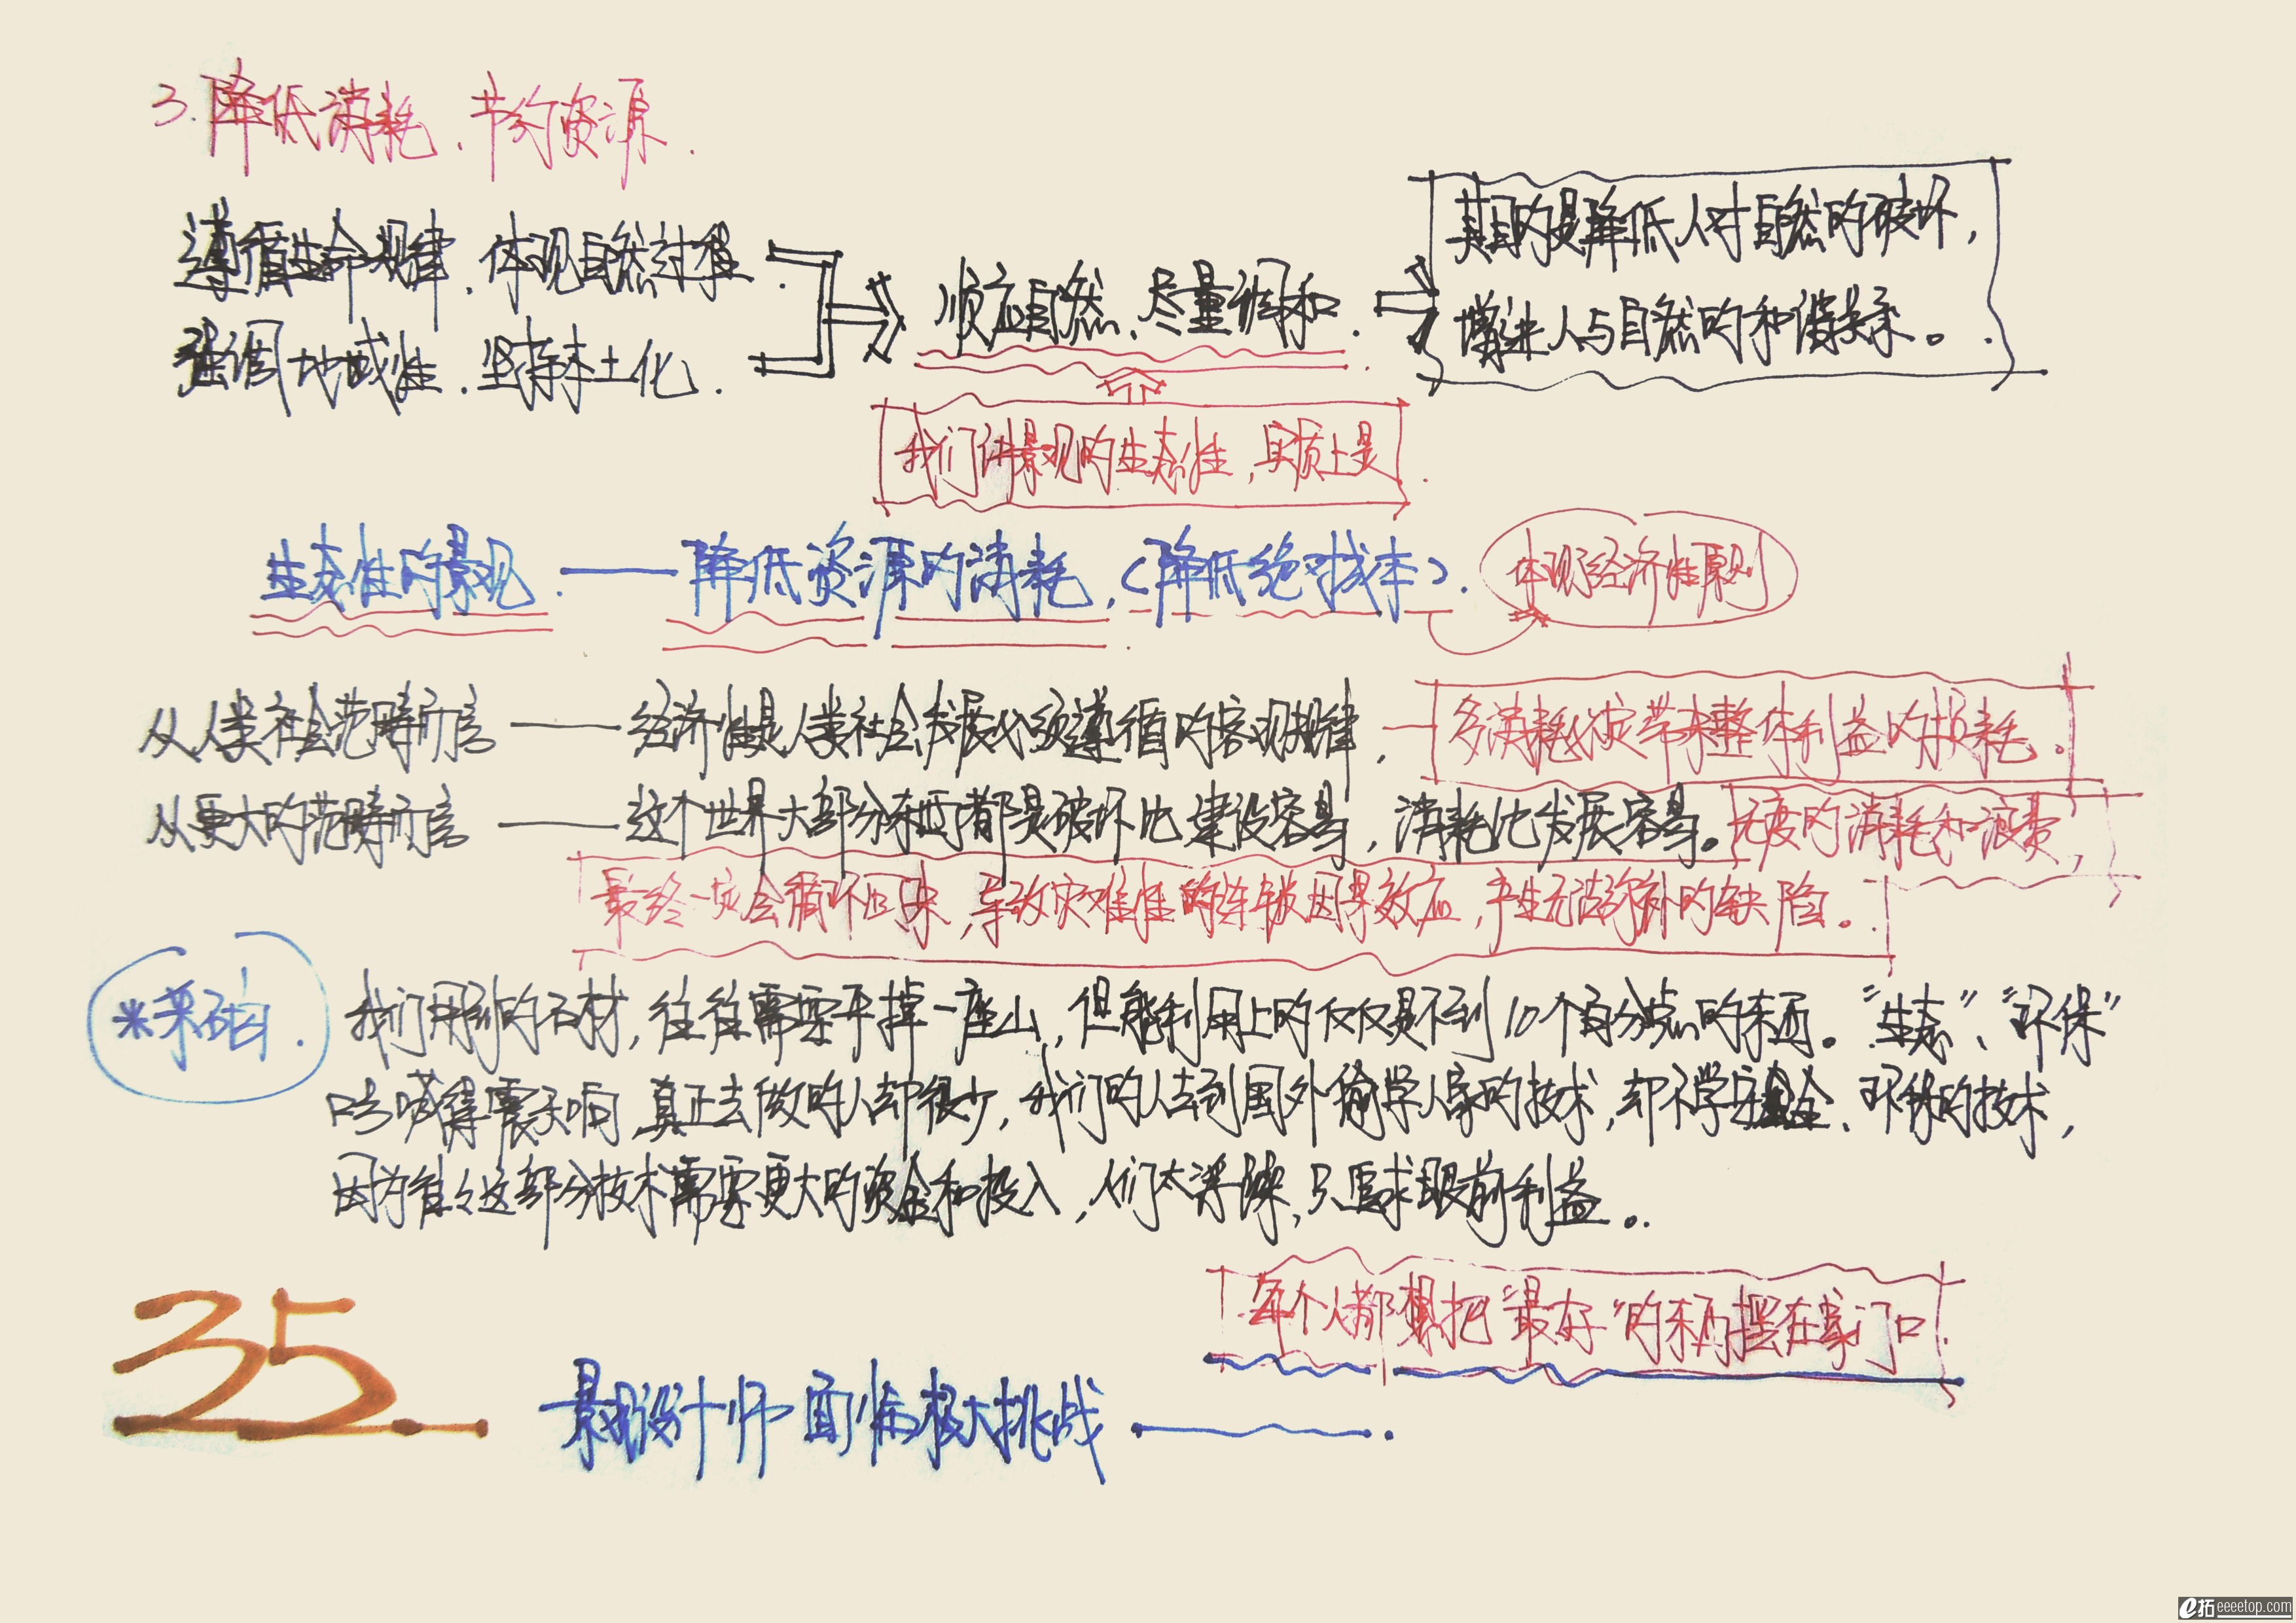 3. 降低消耗、节约资源.
遵循生命规律、体现自然过程.
强调地域性、坚持本土化.
顺应自然、尽量调和.
其目的是降低人对自然的破坏,
增进人与自然的和谐关系。
我们讲景观的生态性,实质上是
生态性的景观. —— 降低资源的消耗,(降低绝对成本).
体现经济性原则
从人类社会范畴而言 —— 经济性是人类社会发展必须遵循的客观规律,多消耗必定带来整体利益的损耗。
从更大的范畴而言 —— 这个世界大部分东西都是破坏比建设容易,消耗比发展容易。无度的消耗和浪费,
最终一定会循环回来,导致灾难性的连锁因果效应,产生无法弥补的缺陷。
*采石场. 我们用到的石材,往往需要开掉一座山,但能利用上的仅仅是不到10个百分点的东西。“生态”、“环保”
口号喊得震天响,真正去做的人却很少,我们的人去到国外偷学人家的技术,却不学安全、环保的技术,
因为往往这部分技术需要更大的资金和投入,人们太浮躁,只追求眼前利益。
每个人都想把“最好”的东西摆在家门口.
35
景观设计师面临极大挑战 ——.
e拓 eeeetop.com